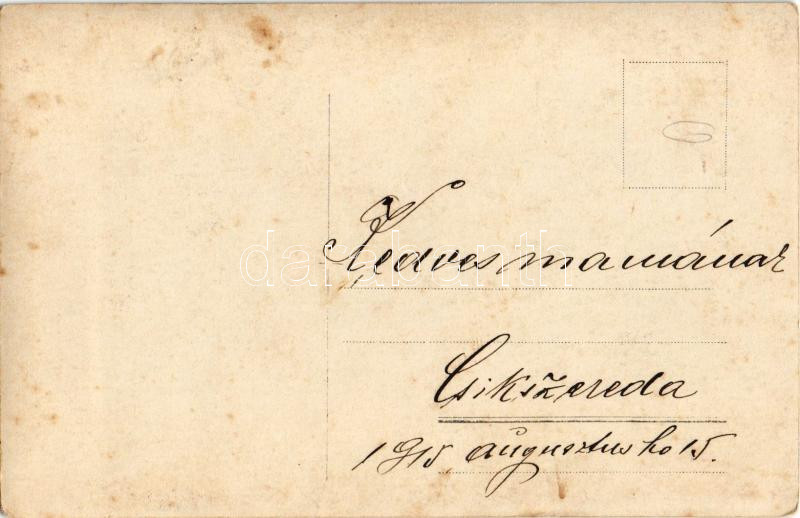 Kedves mamának
darabanth
Csikszereda
1915 augusztus ho 15.